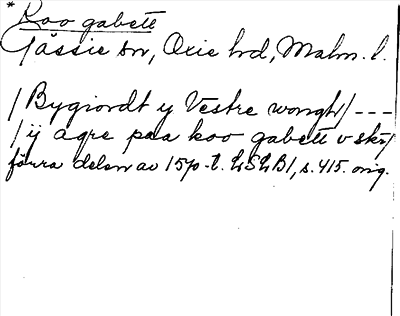 * Koo gabett
Jässie sn, Oxie hd, Malm. l.
/Bygiordt y Vestre wongh/ ---
/ij agre paa koo gabett v skr/
förra delen av 15p-t. LSLB1, s. 415. orig.